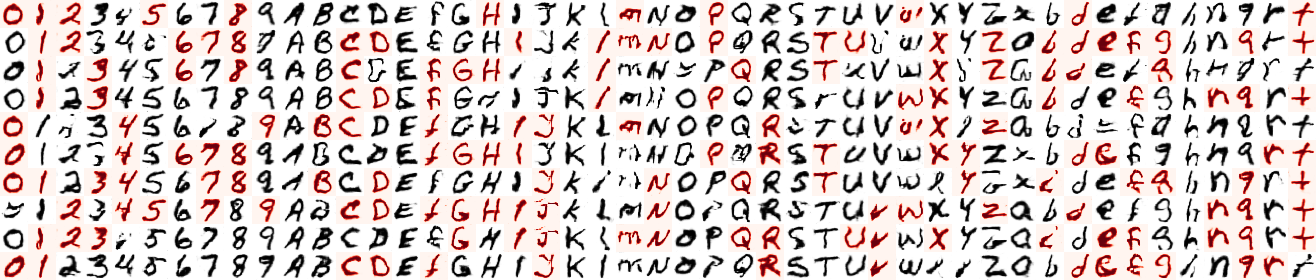 0 1 2 3 4 5 6 7 8 9 A B C D E f G H I J K l m N O P Q R S T U V w X Y Z a b d e f g h n q r t
0 1 2 3 4 5 6 7 8 9 A B C D E f G H I J K l m N O P Q R S T U V w X Y Z a b d e f g h n q r t
0 1 2 3 4 5 6 7 8 9 A B C D E f G H I J K l m N O P Q R S T U V w X Y Z a b d e f g h n q r t
0 1 2 3 4 5 6 7 8 9 A B C D E f G H I J K l m N O P Q R S T U V w X Y Z a b d e f g h n q r t
0 1 2 3 4 5 6 7 8 9 A B C D E f G H I J K l m N O P Q R S T U V w X Y Z a b d e f g h n q r t
0 1 2 3 4 5 6 7 8 9 A B C D E f G H I J K l m N O P Q R S T U V w X Y Z a b d e f g h n q r t
0 1 2 3 4 5 6 7 8 9 A B C D E f G H I J K l m N O P Q R S T U V w X Y Z a b d e f g h n q r t
0 1 2 3 4 5 6 7 8 9 A B C D E f G H I J K l m N O P Q R S T U V w X Y Z a b d e f g h n q r t
0 1 2 3 4 5 6 7 8 9 A B C D E f G H I J K l m N O P Q R S T U V w X Y Z a b d e f g h n q r t
0 1 2 3 4 5 6 7 8 9 A B C D E f G H I J K l m N O P Q R S T U V w X Y Z a b d e f g h n q r t